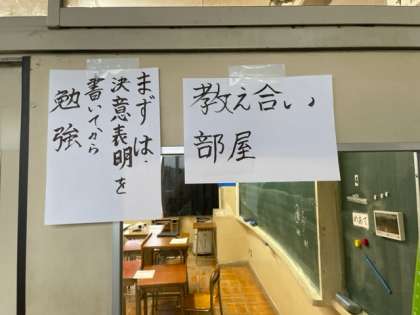 まずは、
決意表明を
書いてから
勉強
教え合い
部屋
めあて